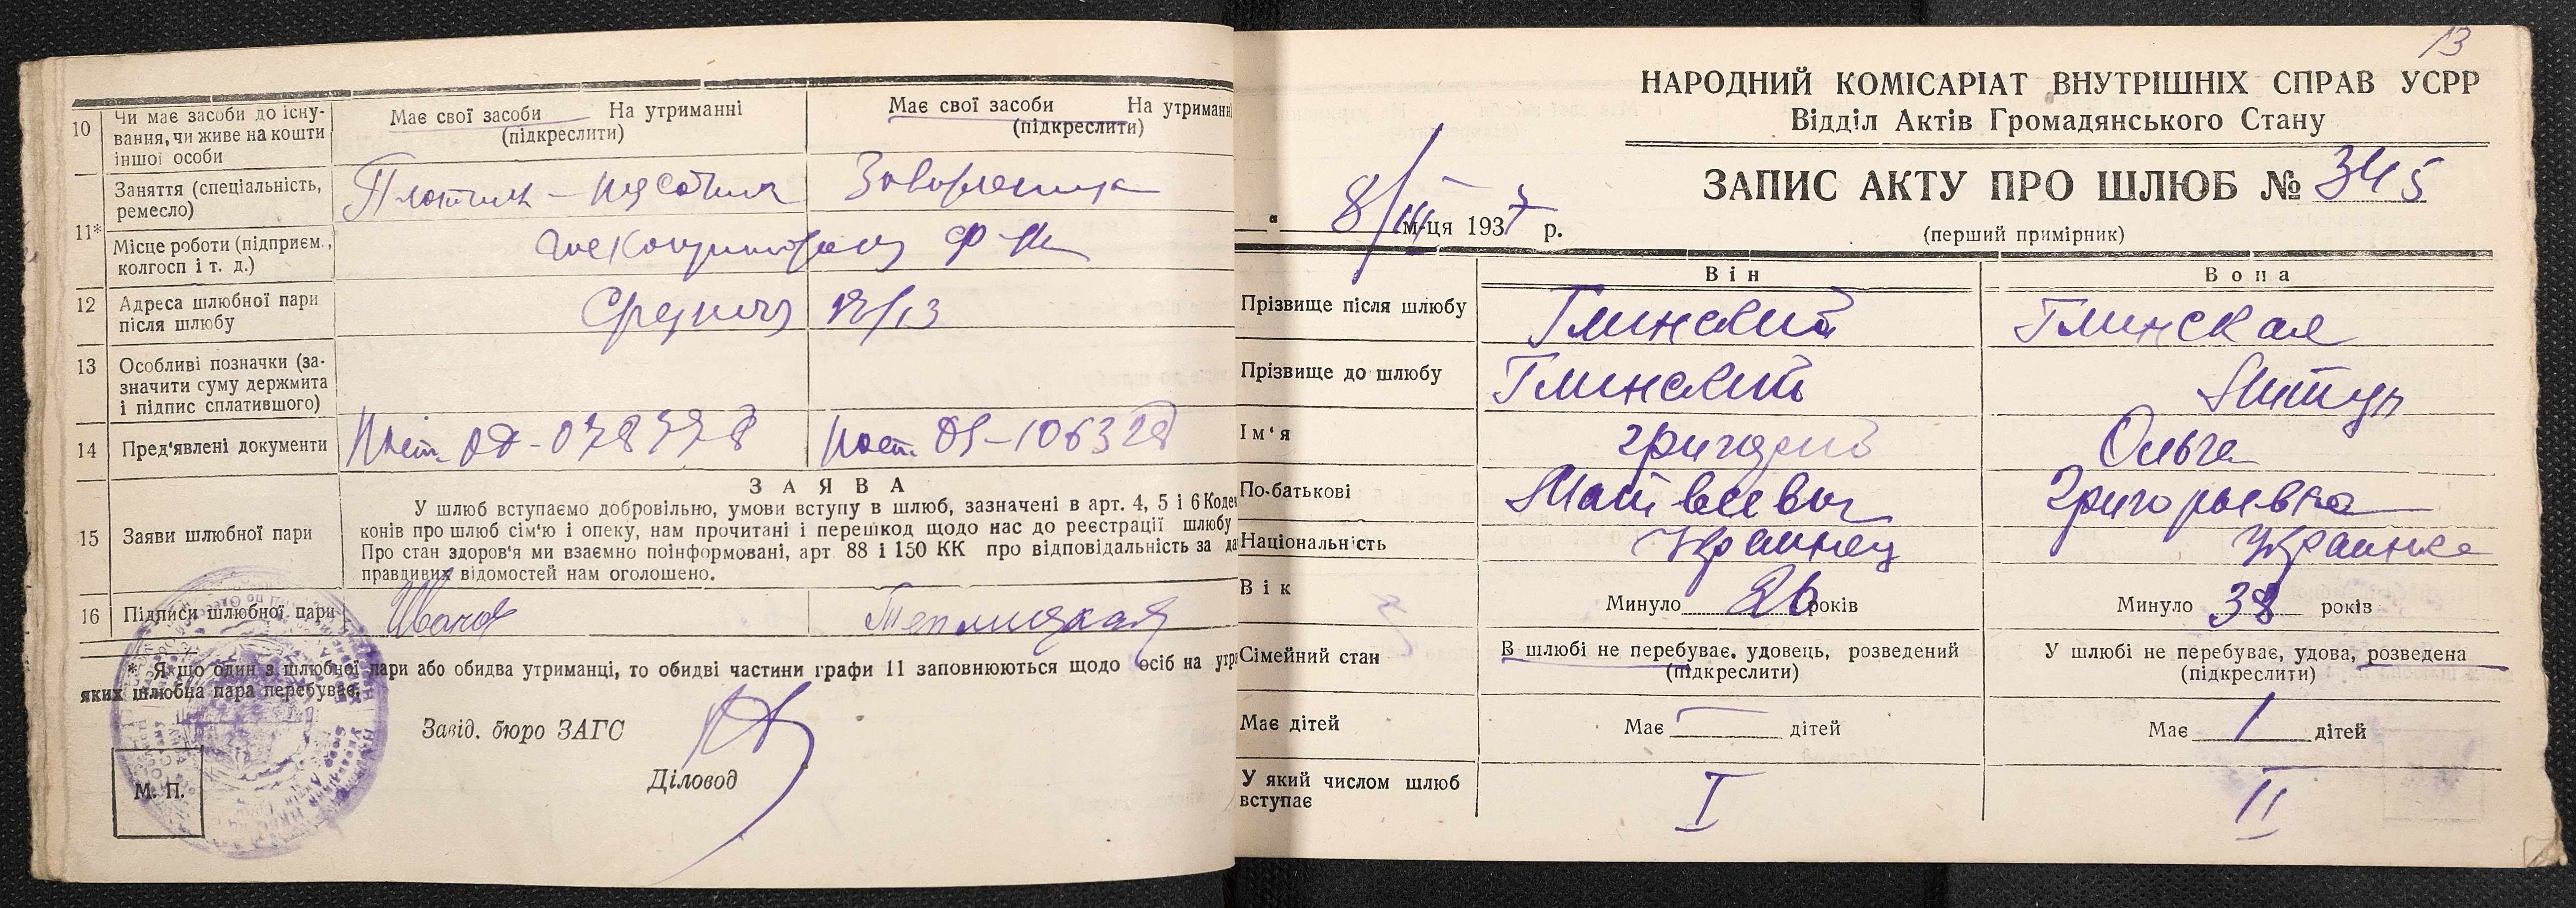 10 Чи має засоби до існу-
вання, чи живе на кошти
іншої особи
Має свої засоби На утриманні
(підкреслити)
Має свої засоби На утриманні
(підкреслити)
11*
Заняття (спеціальність,
ремесло)
Місце роботи (підприєм.,
колгосп і т. д.)
12 Адреса шлюбної пари
після шлюбу
12/13
13 Особливі позначки (за-
значити суму держмита
і підпис сплатившого)
14 Пред'явлені документи
15 Заяви шлюбної пари
ЗАЯВА
У шлюб вступаємо добровільно, умови вступу в шлюб, зазначені в арт. 4, 5 і 6 Коде
конів про шлюб сім'ю і опеку, нам прочитані і перешкод щодо нас до реєстрації шлюбу
Про стан здоров'я ми взаємно поінформовані, арт 88 і 150 КК про відповідальність за да
правдивих відомостей нам оголошено.
16 Підписи шлюбної пари
Иванов Теплицкая
* Якщо один з шлюбної пари або обидва утриманці, то обидві частини графи 11 заповнюються щодо осіб на утри
яких шлюбна пара перебуває.
Завід. бюро ЗАГС
Діловод
М. П.
13
НАРОДНИЙ КОМІСАРІАТ ВНУТРІШНІХ СПРАВ УСРР
Відділ Актів Громадянського Стану
ЗАПИС АКТУ ПРО ШЛЮБ № 345
(перший примірник)
„ 8/III м-ця 1937 р.
Він Вона
Прізвище після шлюбу Глинский Глинская
Прізвище до шлюбу Глинский
Ім'я Григорий Ольга
По-батькові Матвеевич Григорьевна
Національність Украинец Украинка
Вік Минуло 26 років Минуло 38 років
Сімейний стан
В шлюбі не перебуває, удовець, розведений
(підкреслити)
У шлюбі не перебуває, удова, розведена
(підкреслити)
Має дітей Має — дітей Має 1 дітей
У який числом шлюб
вступає
I II